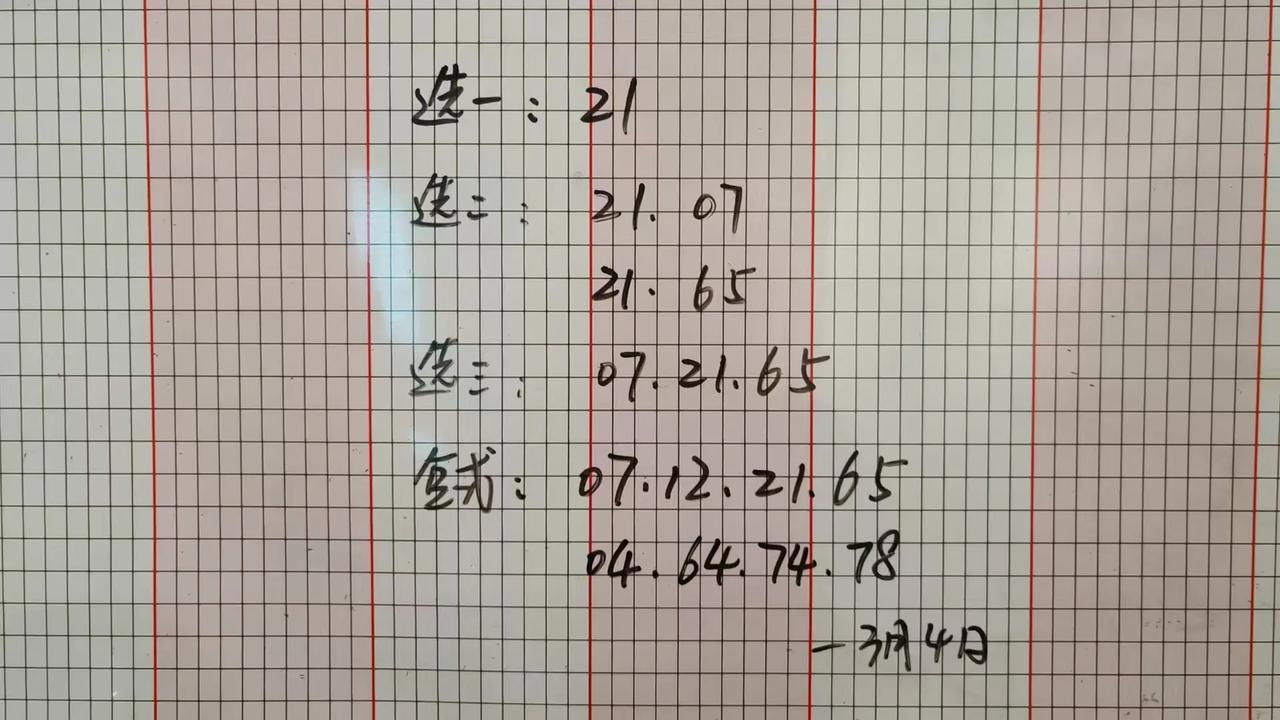 选一：21
选二：21. 07
21. 65
选三：07. 21. 65
复式：07. 12. 21. 65
04. 64. 74. 78
—3月4日